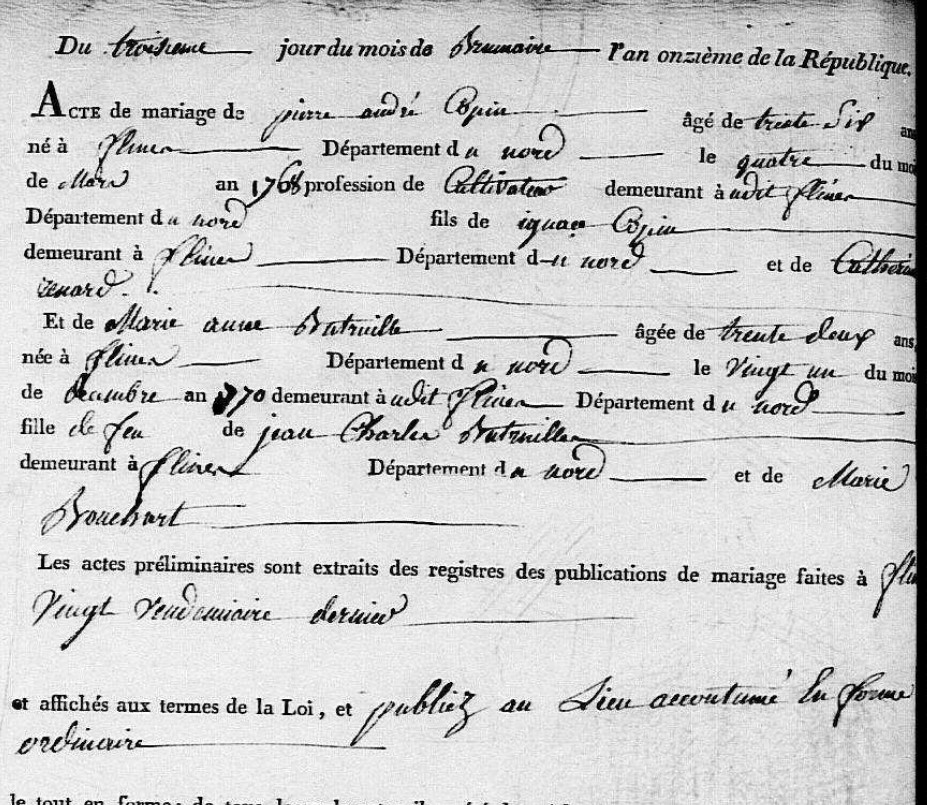 Du troisieme jour du mois de Brumaire l'an onzième de la République.
ACTE de mariage de pierre andré Copin âgé de trente Six ans
né à flines Département du nord le quatre du moi
de Mars an 1768 profession de Cultivateur demeurant à udit flines
Département du nord fils de ignace Copin
demeurant à flines Département du nord et de Catherin
renard.
Et de Marie anne Butruille âgée de trente deux ans,
née à flines Département du nord le vingt un du moi
de decembre an 1770 demeurant à udit flines Département du nord
fille de feu de jean Charles Butruille
demeurant à flines Département du nord et de Marie
Bouchart
Les actes préliminaires sont extraits des registres des publications de mariage faites à fli
vingt vendemiaire dernier
et affichés aux termes de la Loi, et publiez au Lieu accoutumé En forme
ordinaire
le tout en forme; de tous